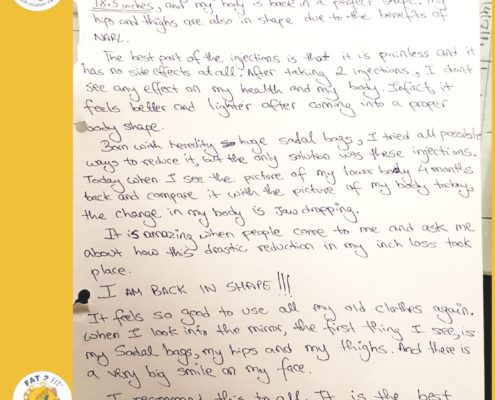 18.5 inches, and my body is back in a perfect shape. My
hips and thighs are also in shape due to the benefits of
NARL.
The best part of the injections is that it is painless and it
has no side effects at all. After taking 2 injections, I don't
see any effect on my health and my body. Infact, it
feels better and lighter after coming into a proper
body shape.
Born with heredity huge sadal bags, I tried all possible
ways to reduce it, but the only solution was these injections.
Today when I see the picture of my lower body 4 months
back and compare it with the picture of my body today,
the change in my body is Jaw dropping.
It is amazing when people come to me and ask me
about how this drastic reduction in my inch loss took
place.
I AM BACK IN SHAPE!!!
It feels so good to use all my old clothes again.
When I look into the mirror, the first thing I see, is
my Sadal bags, my hips and my thighs. And there is
a very big smile on my face.
I recommend this to all. It is the best
FAT 2 FIT